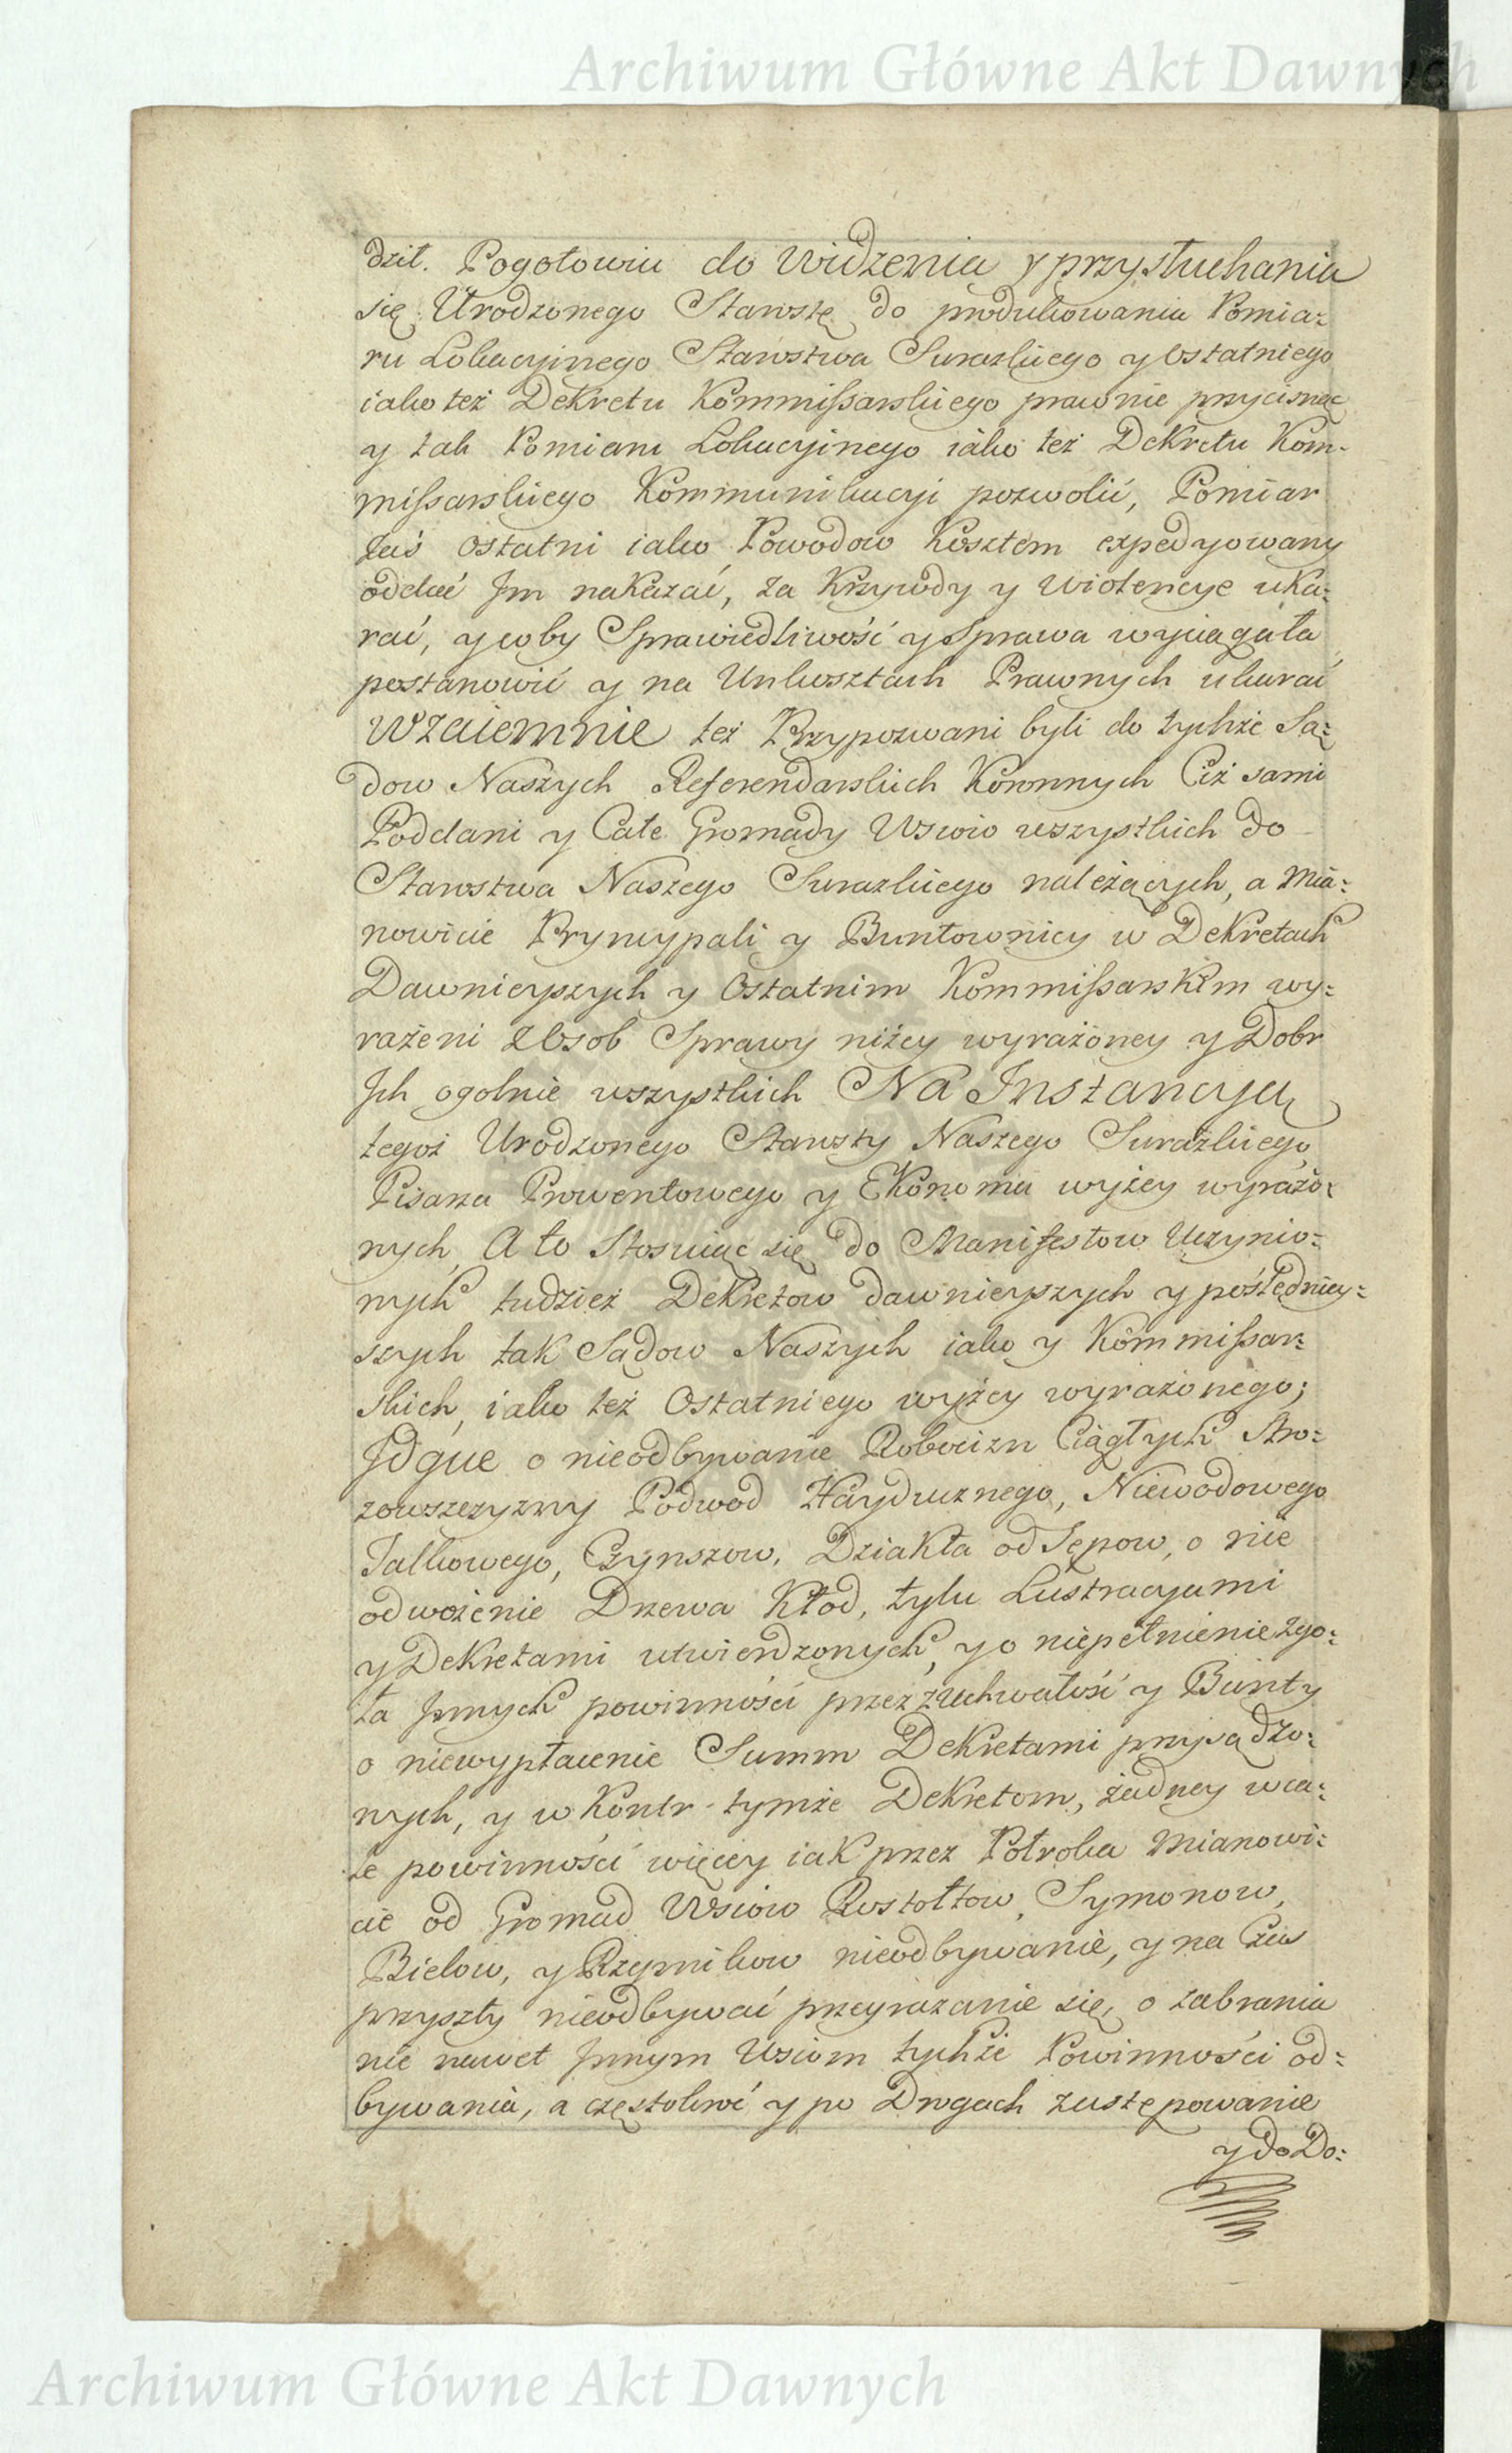 Archiwum Główne Akt Dawnych
dził. Pogotowiu do Widzenia y przysłuchania
się Urodzonego Starostę do produkowania Pomia:
ru Lokacyinego Starostwa Surazkiego y Ostatniego
iako też Dekretu Kommissarskiego prawnie przycisnąc
y tak Pomiaru Lokacyinego iako też Dekretu Kom-
missarskiego Kommunikacyi pozwolić, Pomiar
zaś ostatni iako Powodow Kosztem expedyowany
oddać Im nakazać, za Krzywdy y wiolencye uka:
rać, y coby Sprawiedliwość y Sprawa wyciągała
postanowić y na Unkosztach Prawnych ukarać
Wzaiemnie też Przypozwani byli do tychże Są:
dow Naszych Referendarskich Koronnych Ciż sami
Poddani y Całe Gromady Wsiow wszystkich do
Starostwa Naszego Surazkiego należących, a Mia:
nowicie Pryncypali y Buntownicy w Dekretach
Dawnieyszych y Ostatnim Kommissarskim wy:
rażeni z Osob Sprawy niżey wyrażoney y Dobr
Ich ogolnie wszystkich Na Instancyą
tegoż Urodzonego Starosty Naszego Surażkiego
Pisarza Prowentowego y Ekonoma wyżey wyrażo:
nych, A to Stosuiąc się do Manifestow Uczynio:
nych tudzież Dekretow dawnieyszych y pośledniey:
szych tak Sądow Naszych iako y Kommissar:
skich, iako też Ostatniego wyżey wyrażonego;
Idque o nieodbywanie Robocizn Ciągłych Stro:
zowszczyzny Podwod Hayducznego, Niewodowego
Jałkowego, Czynszow, Dziakła od Sępow, o nie
odwożenie Drzewa Kłod, tylu Lustracyami
y Dekretami utwierdzonych, y o niepełnienie zgo:
ła Innych powinności przez zuchwałość y Bunty
o niewypłacenie Summ Dekretami przysądzo:
nych, y w Kontr tymże Dekretom, żadney wca:
le powinności więcey iak przez Połroka Mianowi:
cie od Gromad Wsiow Rostołtow, Symonow,
Bielow, y Rzepnikow nieodbywanie, y na Czas
przyszły nieodbywać przeyrazanie się, o zabrania
nie nawet Innym Wsiom tychże Powinności od:
bywania, a częstokroć y po Drogach zastępowanie
y do Do:
Archiwum Główne Akt Dawnych